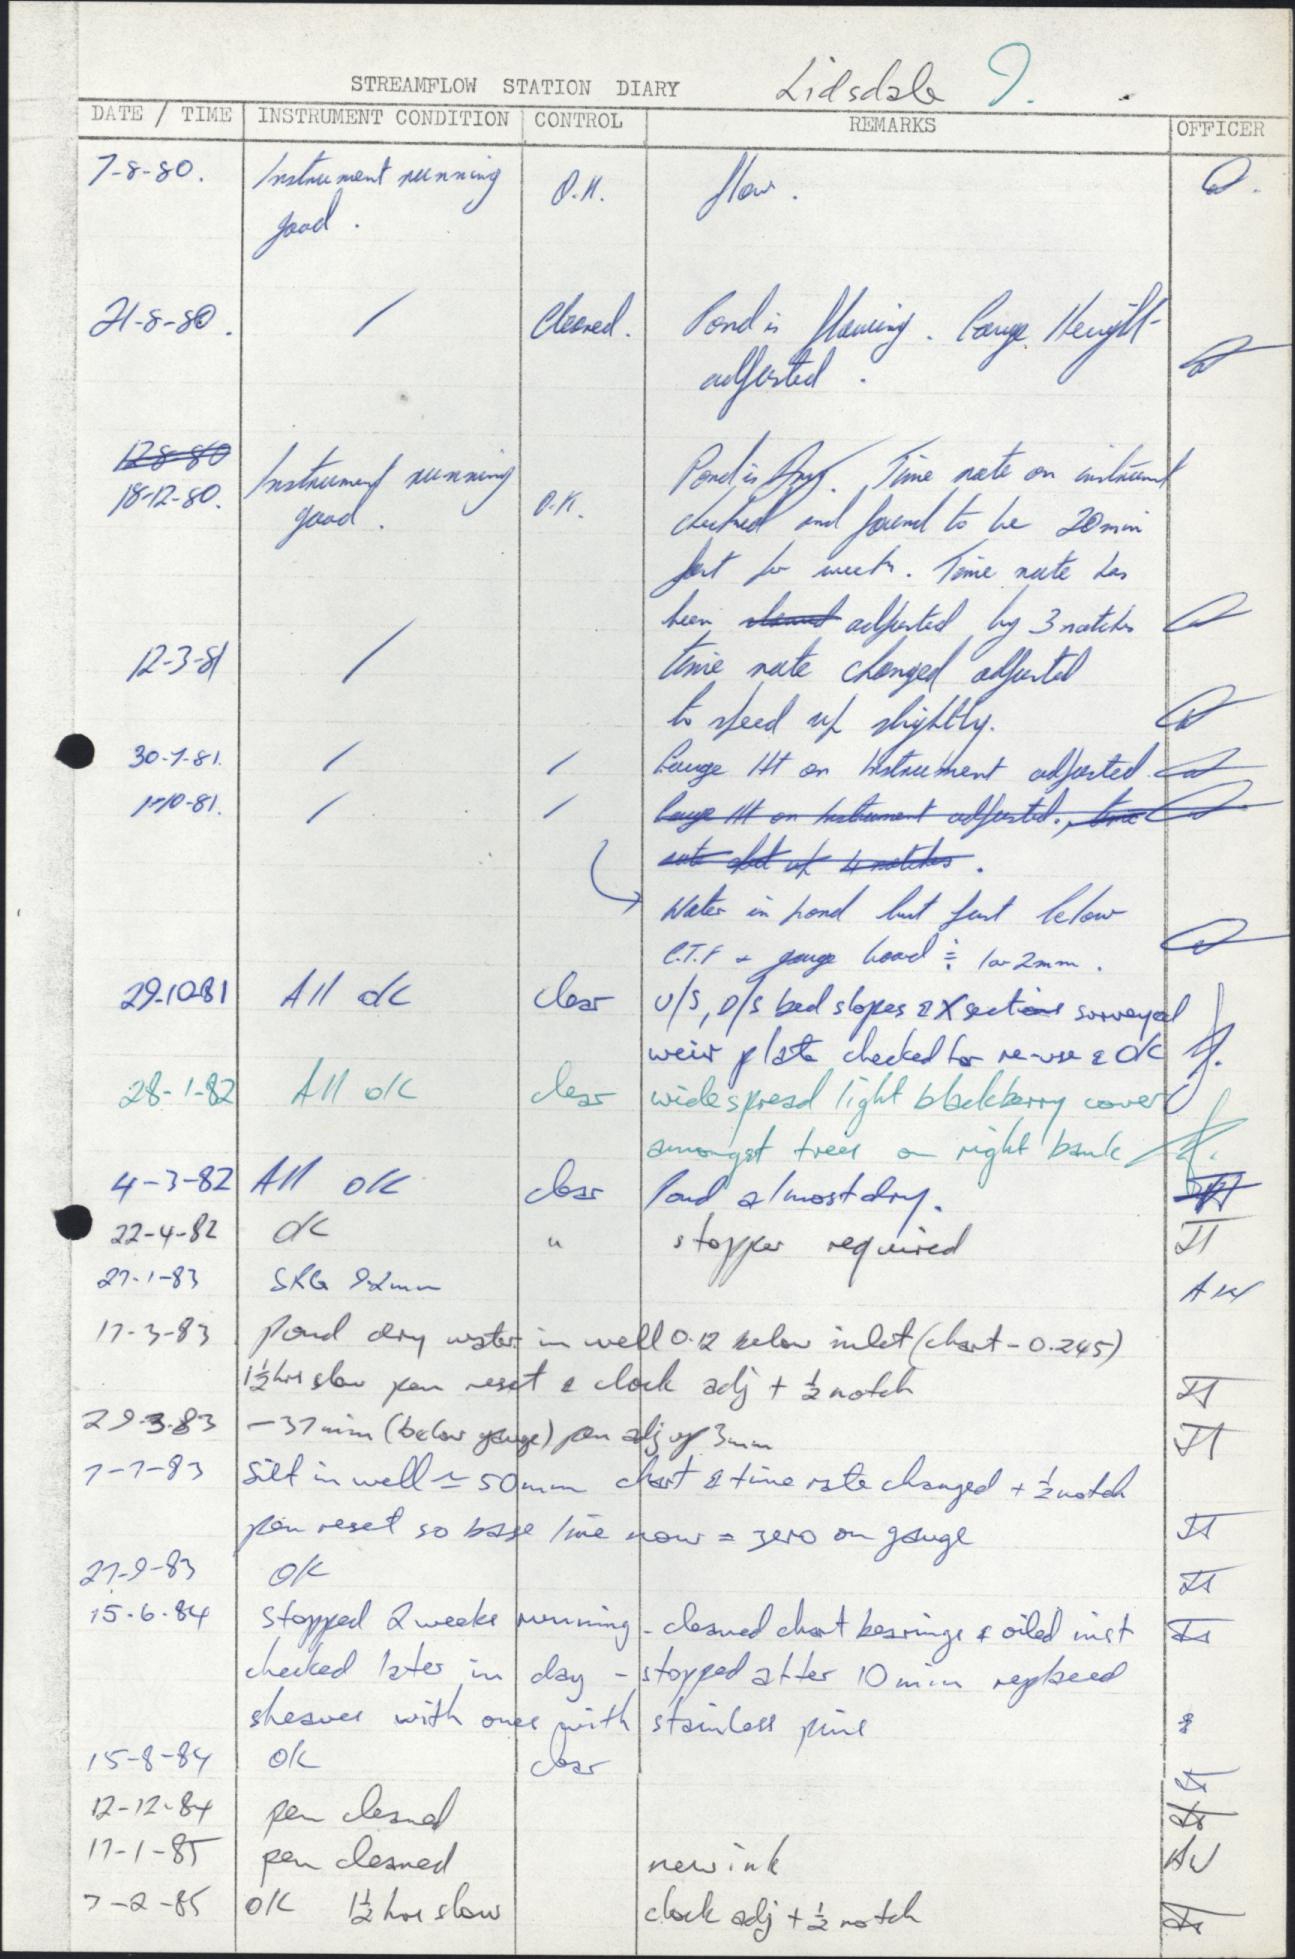 STREAMFLOW STATION DIARY Lidsdale 7.
DATE / TIME INSTRUMENT CONDITION CONTROL REMARKS OFFICER
7-8-80. Instrument running O.K. flow.
good.
21-8-80. / Cleared. Pond is flowing. Gauge Height
adjusted.
12-8-80
18-12-80. Instrument running O.K. Pond is Dry. Time rate on instrument
good. checked and found to be 20 min
fast for week. Time rate has
been adjusted by 3 notches
12-3-81 / time rate changed adjusted
to speed up slightly.
30-7-81. / / Gauge Ht on Instrument adjusted.
1-10-81. / / Gauge Ht on Instrument adjusted, time
rate up 4 notches.
Water in pond but just below
C.T.F & gauge board ≑ 1 or 2mm.
29-10-81 All OK clear U/S, D/S bed slopes & X sections surveyed
weir plate checked for re-use & OK
28-1-82 All OK clear widespread light blackberry cover
amongst trees on right bank
4-3-82 All OK clear Pond almost dry.
22-4-82 OK " stopper required JT
27-1-83 SRG 92mm AW
17-3-83 Pond dry water in well 0.12 below inlet (chart - 0.245)
1½ hrs slow pen reset & clock adj + ½ notch JT
29-3-83 -37mm (below gauge) pen adj up 3mm JT
7-7-83 Silt in well ≃ 50mm chart & time rate changed + ½ notch
pen reset so base line now = zero on gauge JT
27-9-83 OK JT
15-6-84 stopped 2 weeks running - cleaned chart bearings & oiled inst
checked later in day - stopped after 10 min replaced
sheaves with ones with stainless pins
15-8-84 OK clear
12-12-84 pen cleaned
17-1-85 pen cleaned new ink AW
7-2-85 OK 1½ hrs slow clock adj + ½ notch